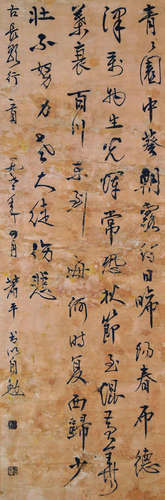 青々園中葵朝露待日晞陽春布德
澤萬物生光輝常恐秋節至焜黃華
葉衰百川東到海何時復西歸少
壯不努力老大徒傷悲
古長歌行一首 年四月 蕭平書以自勉